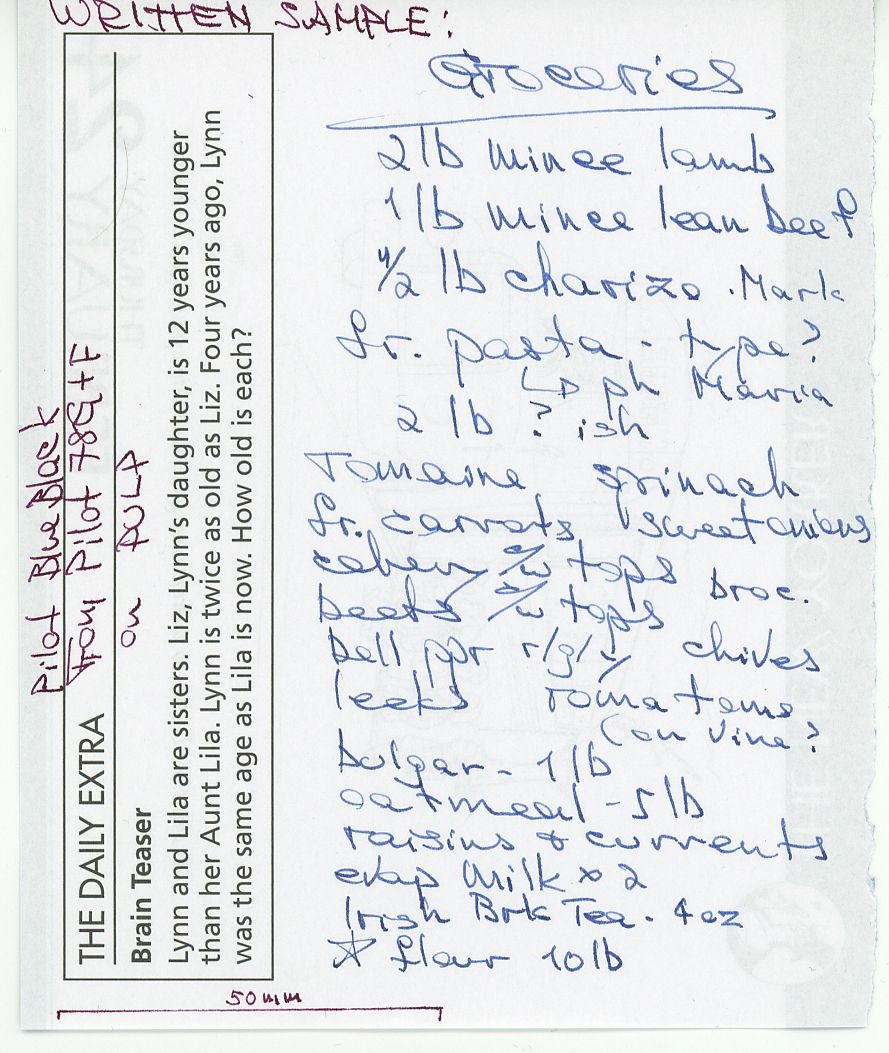 WRITTEN SAMPLE:
Groceries
2 lb mince lamb
1 lb mince lean beef
1/2 lb charizo . Mark
fr. pasta - type?
↳ ph Maria
2 lb ? ish
romaine spinach
fr. carrots sweet onions
w tops
beets w tops broc.
bell ppr r/g/y chives
leeks roma toms
(on vine?
bulgar - 1 lb
oatmeal - 5 lb
raisins & currents
evap milk x 2
Irish Brk Tea - 4 oz
☆ flour 10 lb
Pilot Blue Black
from Pilot 78G+F
on PULP
THE DAILY EXTRA
Brain Teaser
Lynn and Lila are sisters. Liz, Lynn's daughter, is 12 years younger
than her Aunt Lila. Lynn is twice as old as Liz. Four years ago, Lynn
was the same age as Lila is now. How old is each?
50mm